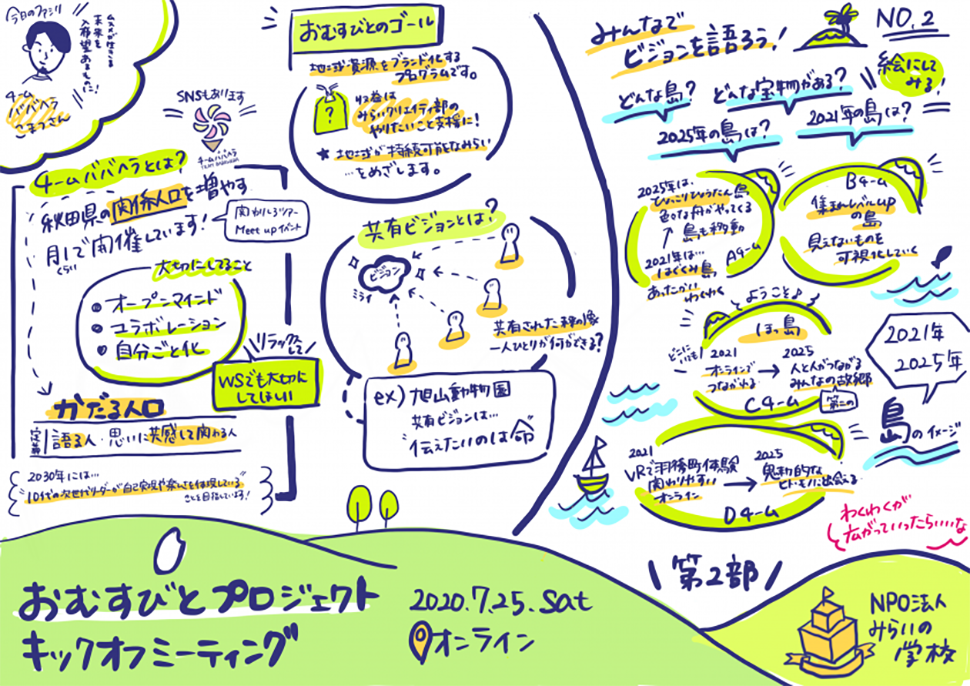 今日のファシリ
チーム
ババヘラ
こまつさん
SNSもあります
チームババヘラ
チームババヘラとは?
秋田県の関係人口を増やす
月1で開催しています!
くらい
関わりしろツアー
Meet upイベント
大切にしてること
オープンマインド
コラボレーション
自分ごと化
リラックスして
WSでも大切に
してほしい
かだる人口
定義
語る人・思いに共感して関わる人
2030年には…
10代の次世代リーダーが自己実現や
ことを目指しています!
おむすびとのゴール
地域資源をブランド化する
プログラムです。
?
収益は
みらいクリエイティ部の
やりたいこと支援に!
★地域が持続可能なみらい
…をめざします。
共有ビジョンとは?
ビジョン
ミライ
共有された未来像
一人ひとりが何ができる?
ex) 旭山動物園
共有ビジョンは…
伝えたいのは命
みんなで
ビジョンを語ろう!
NO.2
絵にして
みる!
どんな島?
どんな宝物がある?
2025年の島は?
2021年の島は?
2025年は、
ひょっこりひょうたん島
色んな舟がやってくる
↑島も移動
2021年は…
はぐくみ島
あったかい
わくわく
Aチーム
Bチーム
集まれレベルupの島
見えないものを
可視化していく
ようこそ♪
ほっ島
どこにいても!
2021
オンラインで
つながれる
→
2025
人と人がつながる
みんなの故郷
第二の
Cチーム
2021
VRで羽後町体験
関わりやすい
オンライン
→
2025
魅力的な
ヒト・モノに出会える
Dチーム
2021年
2025年
島のイメージ
わくわくが
広がっていったらいいな
第2部
おむすびとプロジェクト
キックオフミーティング
2020.7.25.sat
オンライン
NPO法人
みらいの
学校